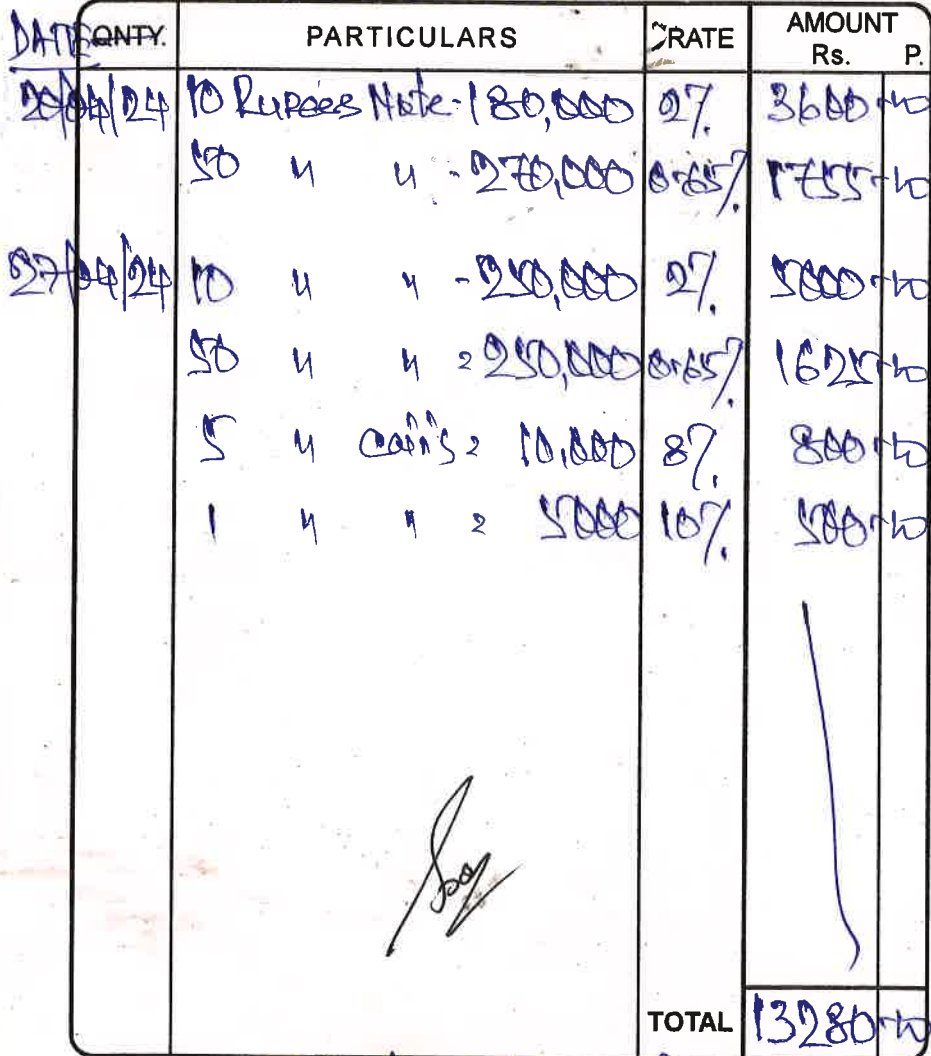 DATE QNTY. PARTICULARS RATE AMOUNT
Rs. P.
20/04/24 10 Rupees Note - 180,000 2% 3600 =00
50 " " - 270,000 0.65% 1755 =00
27/04/24 10 " " - 250,000 2% 5000 =00
50 " " = 250,000 0.65% 1625 =00
5 " coins = 10,000 8% 800 =00
1 " " = 5000 10% 500 =00
TOTAL 13280 =00